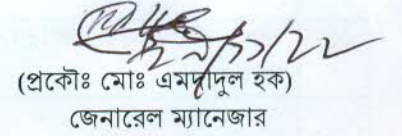 (প্রকৌঃ মোঃ এমদাদুল হক)
জেনারেল ম্যানেজার